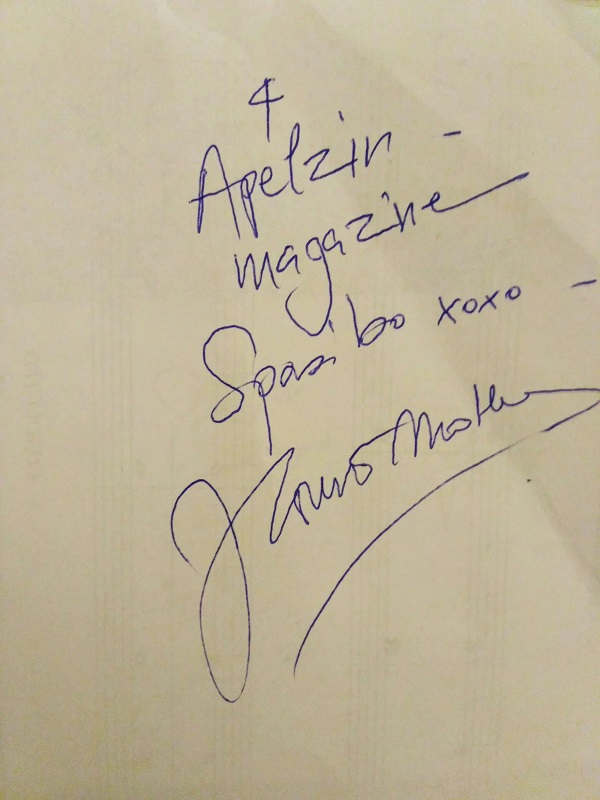 4
Apelzin -
magazine
Spasibo xoxo -